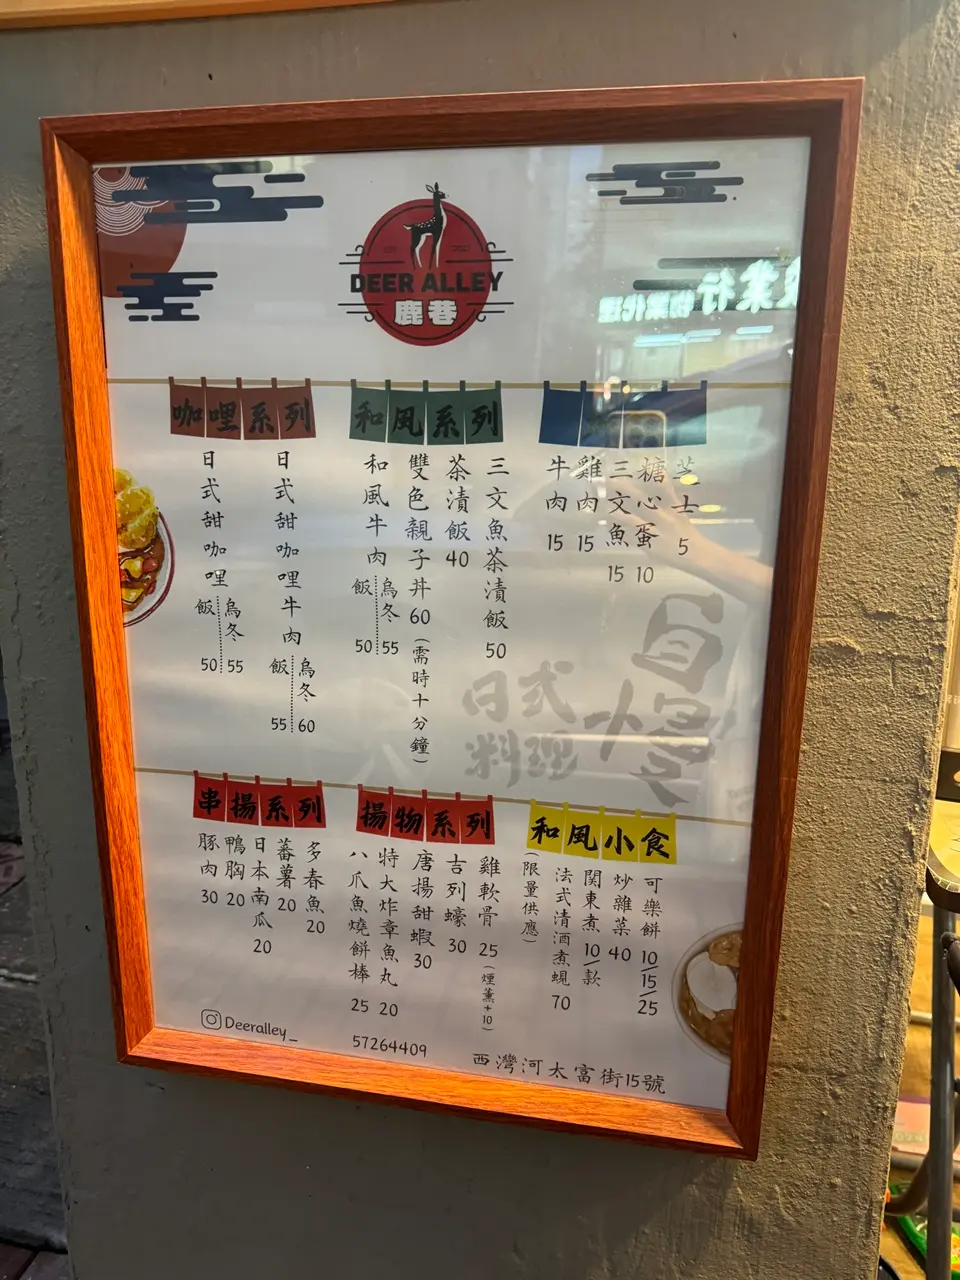 DEER ALLEY
鹿巷
咖哩系列
日式甜咖哩
飯 50
烏冬 55
日式甜咖哩牛肉
飯 55
烏冬 60
和風系列
和風牛肉
飯 50
烏冬 55
雙色親子丼 60（需時十分鐘）
茶漬飯 40
三文魚茶漬飯 50
牛肉 15
雞肉 15
三文魚 15
糖心蛋 10
芝士 5
日式
料理
串揚系列
豚肉 30
鴨胸 20
日本南瓜 20
蕃薯 20
多春魚 20
揚物系列
八爪魚燒餅棒 25
特大炸章魚丸 20
唐揚甜蝦 30
吉列蠔 30
雞軟骨 25（煙薰+10）
和風小食
（限量供應）
法式清酒煮蜆 70
関東煮 10/款
炒雜菜 40
可樂餅 10/15/25
Deeralley_
57264409
西灣河太富街15號